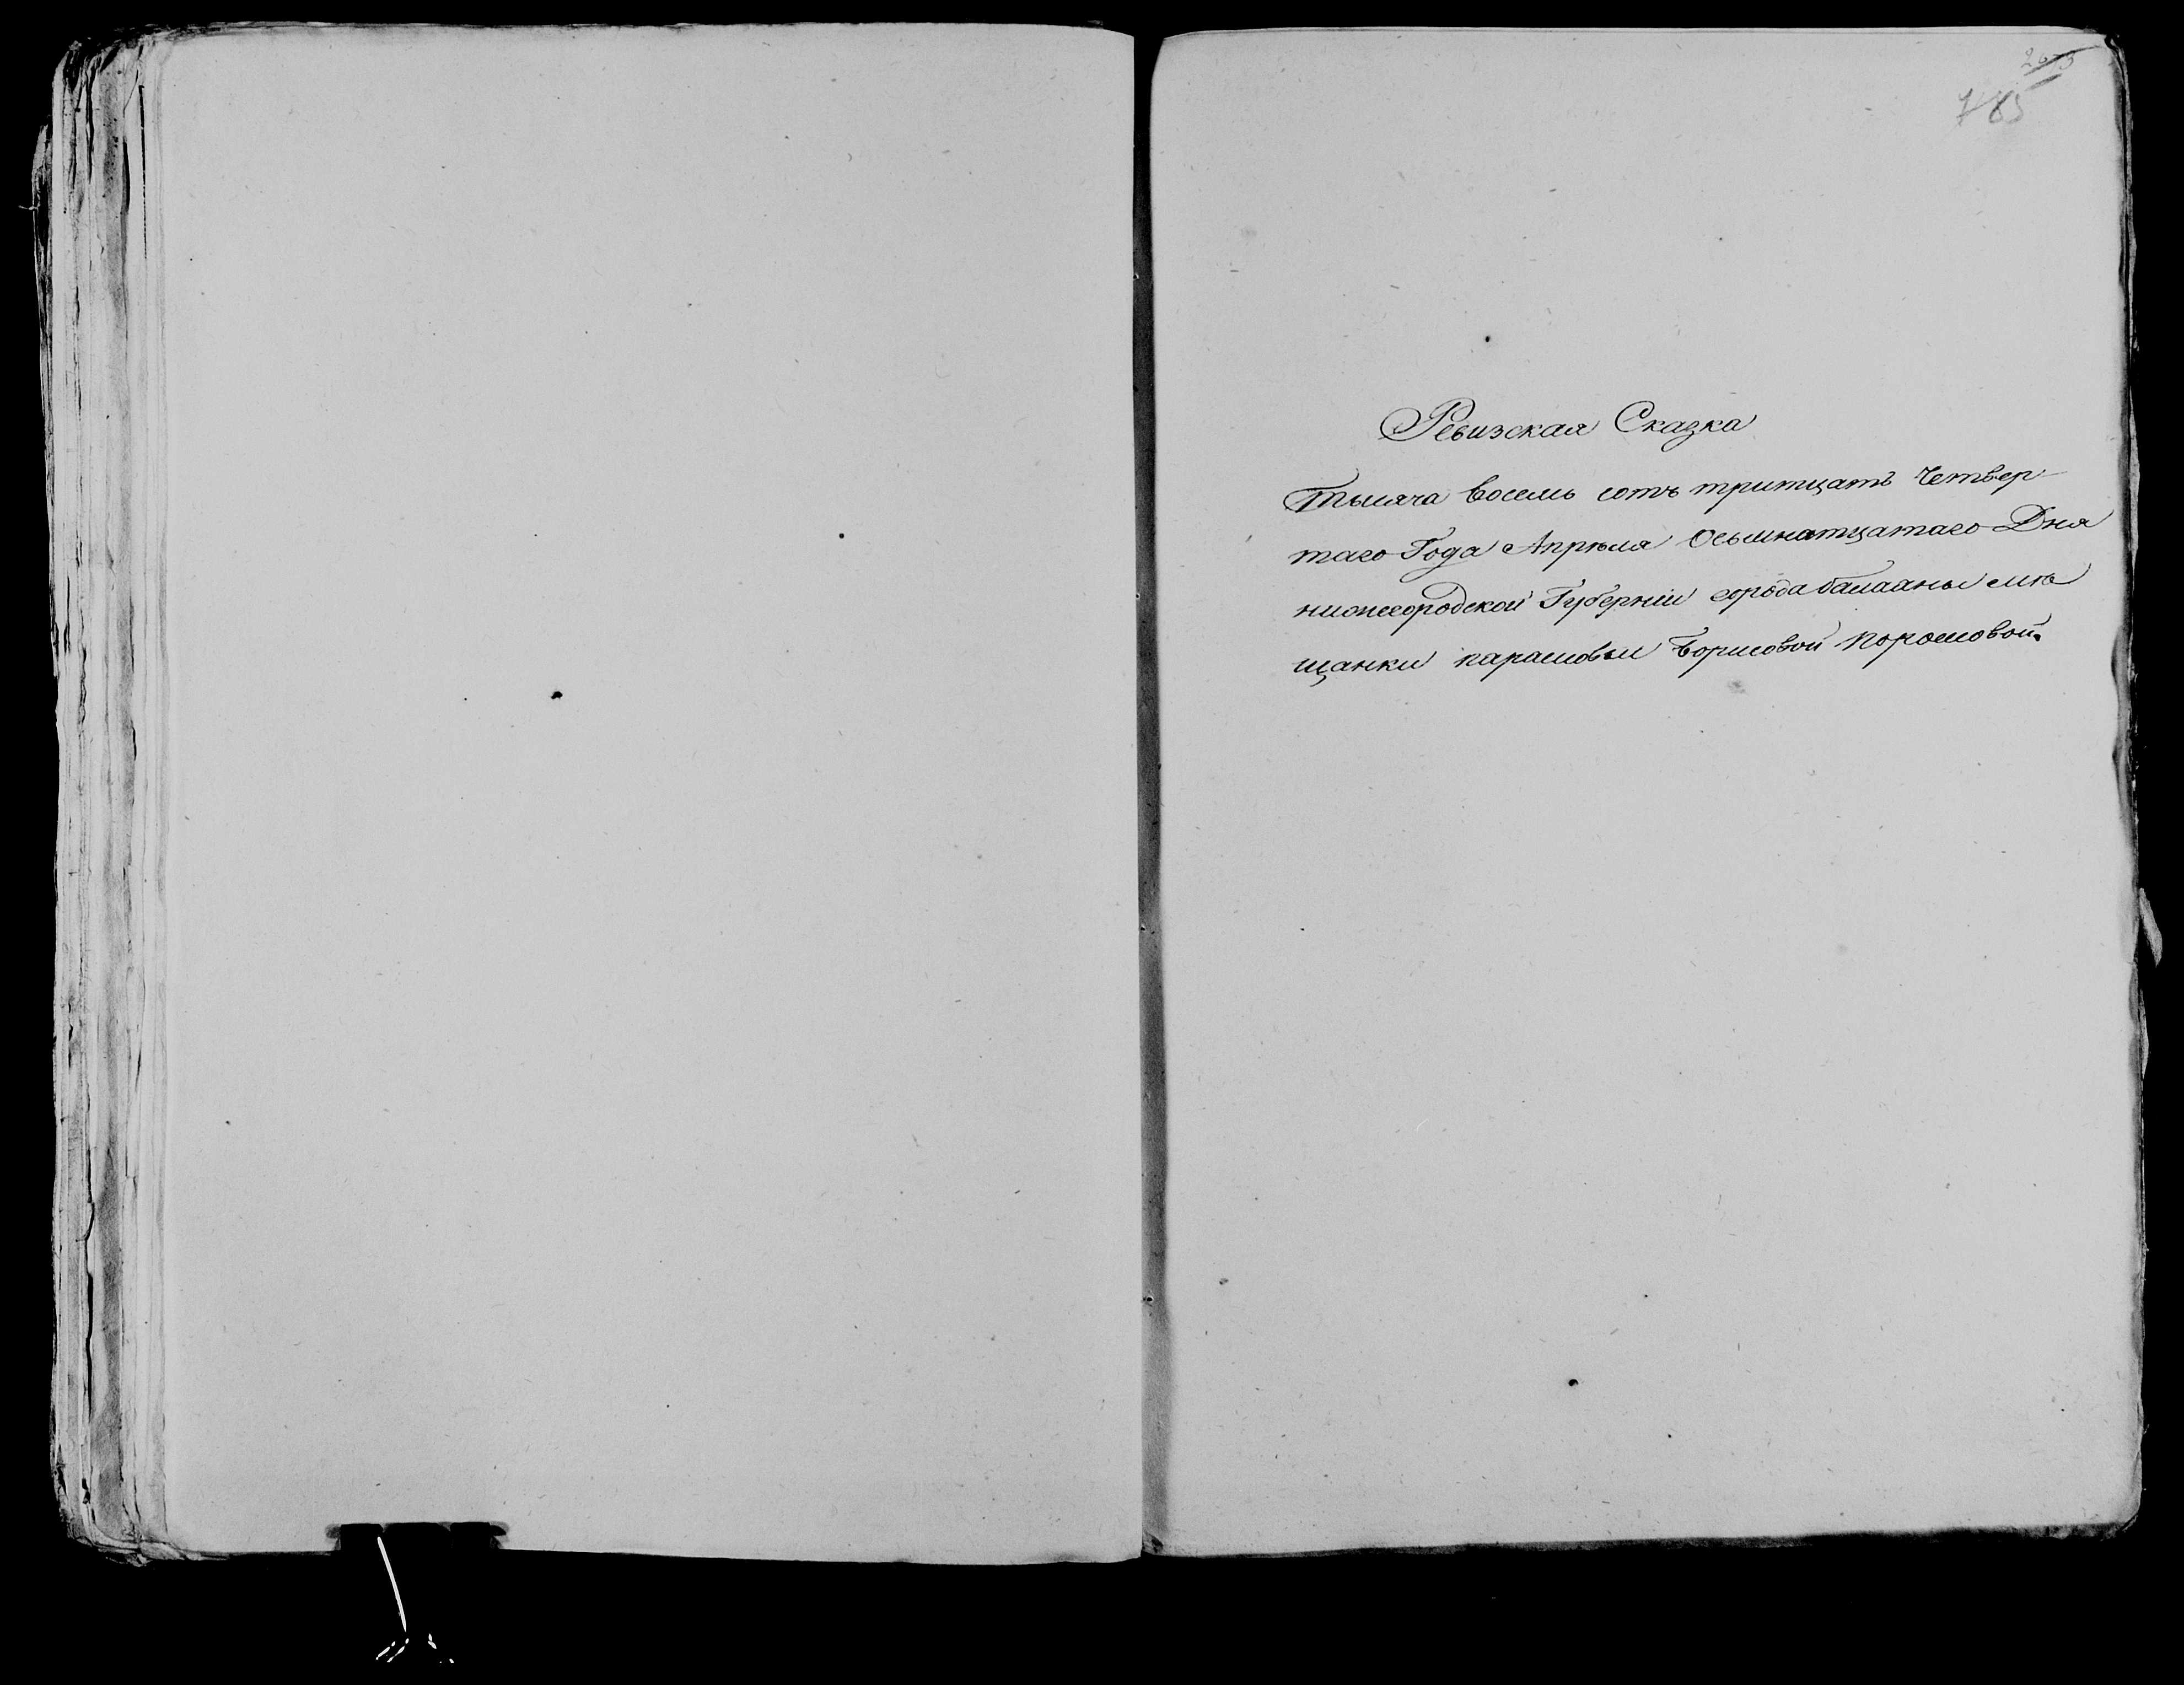 785
Ревизская Сказка
Тысяча восемь сотъ тритцать четвер-
таго Года Апреля Осьмнатцатаго Дня
нижегородской Губерніи города балахны мѣ
щанки Борисовой порошовой.